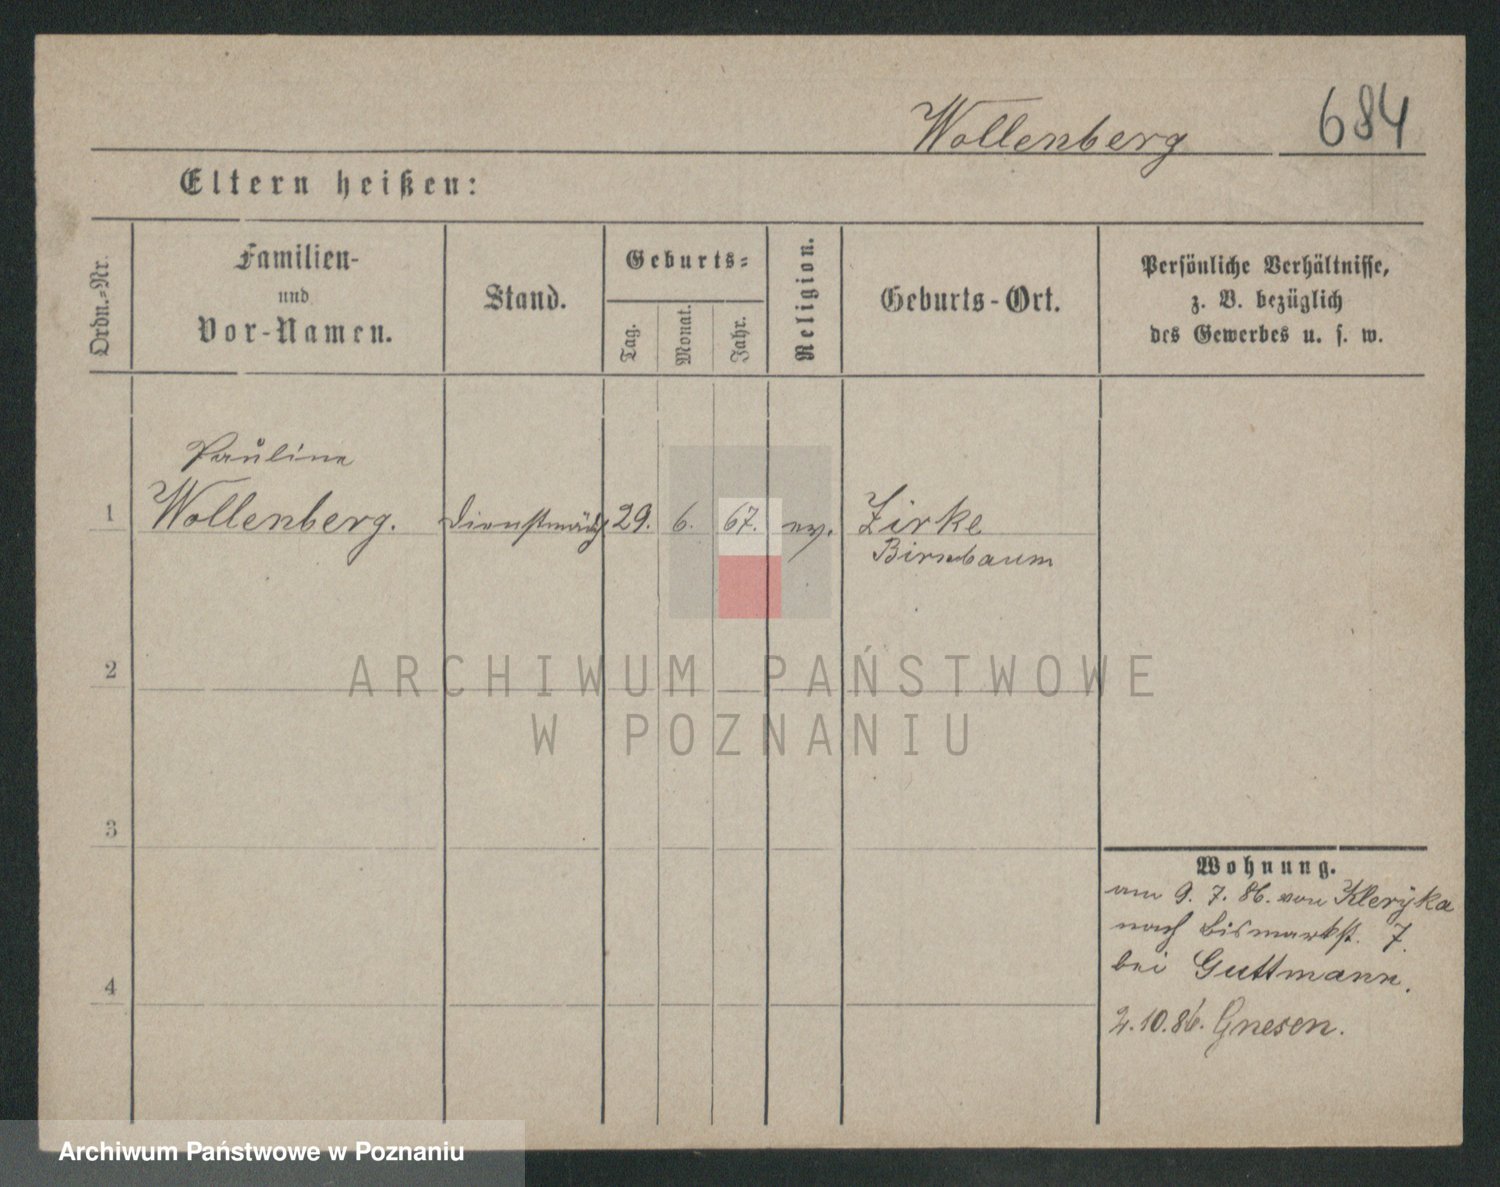 Wollenberg 684
Eltern heißen:
Ordn.-Nr.
Familien-
und
Vor-Namen.
Stand.
Geburts-
Tag.
Monat.
Jahr.
Religion.
Geburts-Ort.
Persönliche Verhältnisse,
z. B. bezüglich
des Gewerbes u. s. w.
Pauline
1 Wollenberg. Dienstmädch 29. 6. 67. ev. Zirke
Birnbaum
2
ARCHIWUM PAŃSTWOWE
W POZNANIU
3
Wohnung.
am 9. 7. 86. von Kleryka
nach Bismarkst. 7.
bei Guttmann.
4
2.10.86. Gnesen.
Archiwum Państwowe w Poznaniu